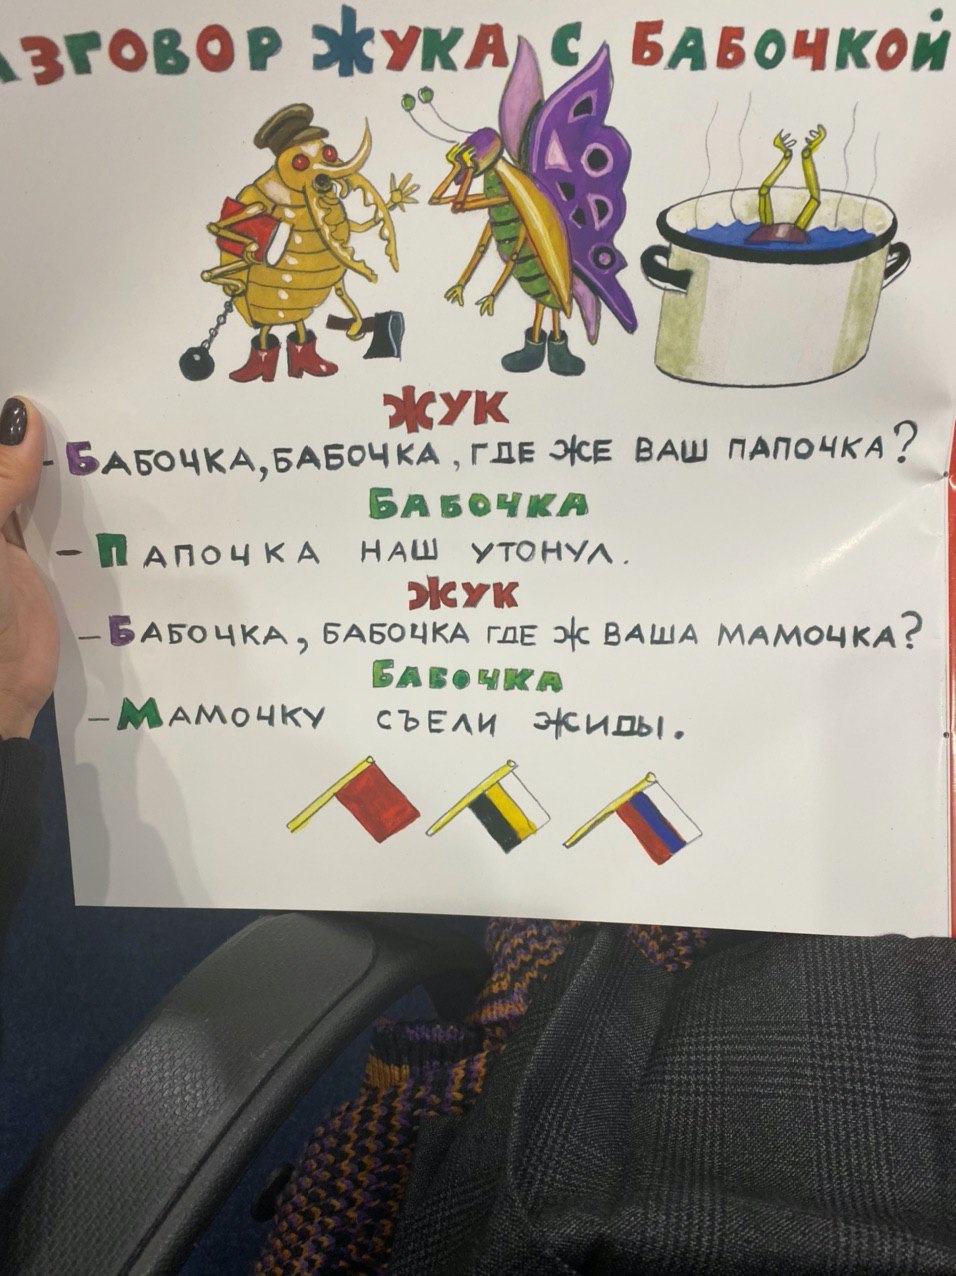 АЗГОВОР ЖУКА С БАБОЧКОЙ
ЖУК
-БАБОЧКА, БАБОЧКА, ГДЕ ЖЕ ВАШ ПАПОЧКА?
БАБОЧКА
- ПАПОЧКА НАШ УТОНУЛ.
ЖУК
- БАБОЧКА, БАБОЧКА ГДЕ Ж ВАША МАМОЧКА?
БАБОЧКА
- МАМОЧКУ СЪЕЛИ ЖИДЫ.